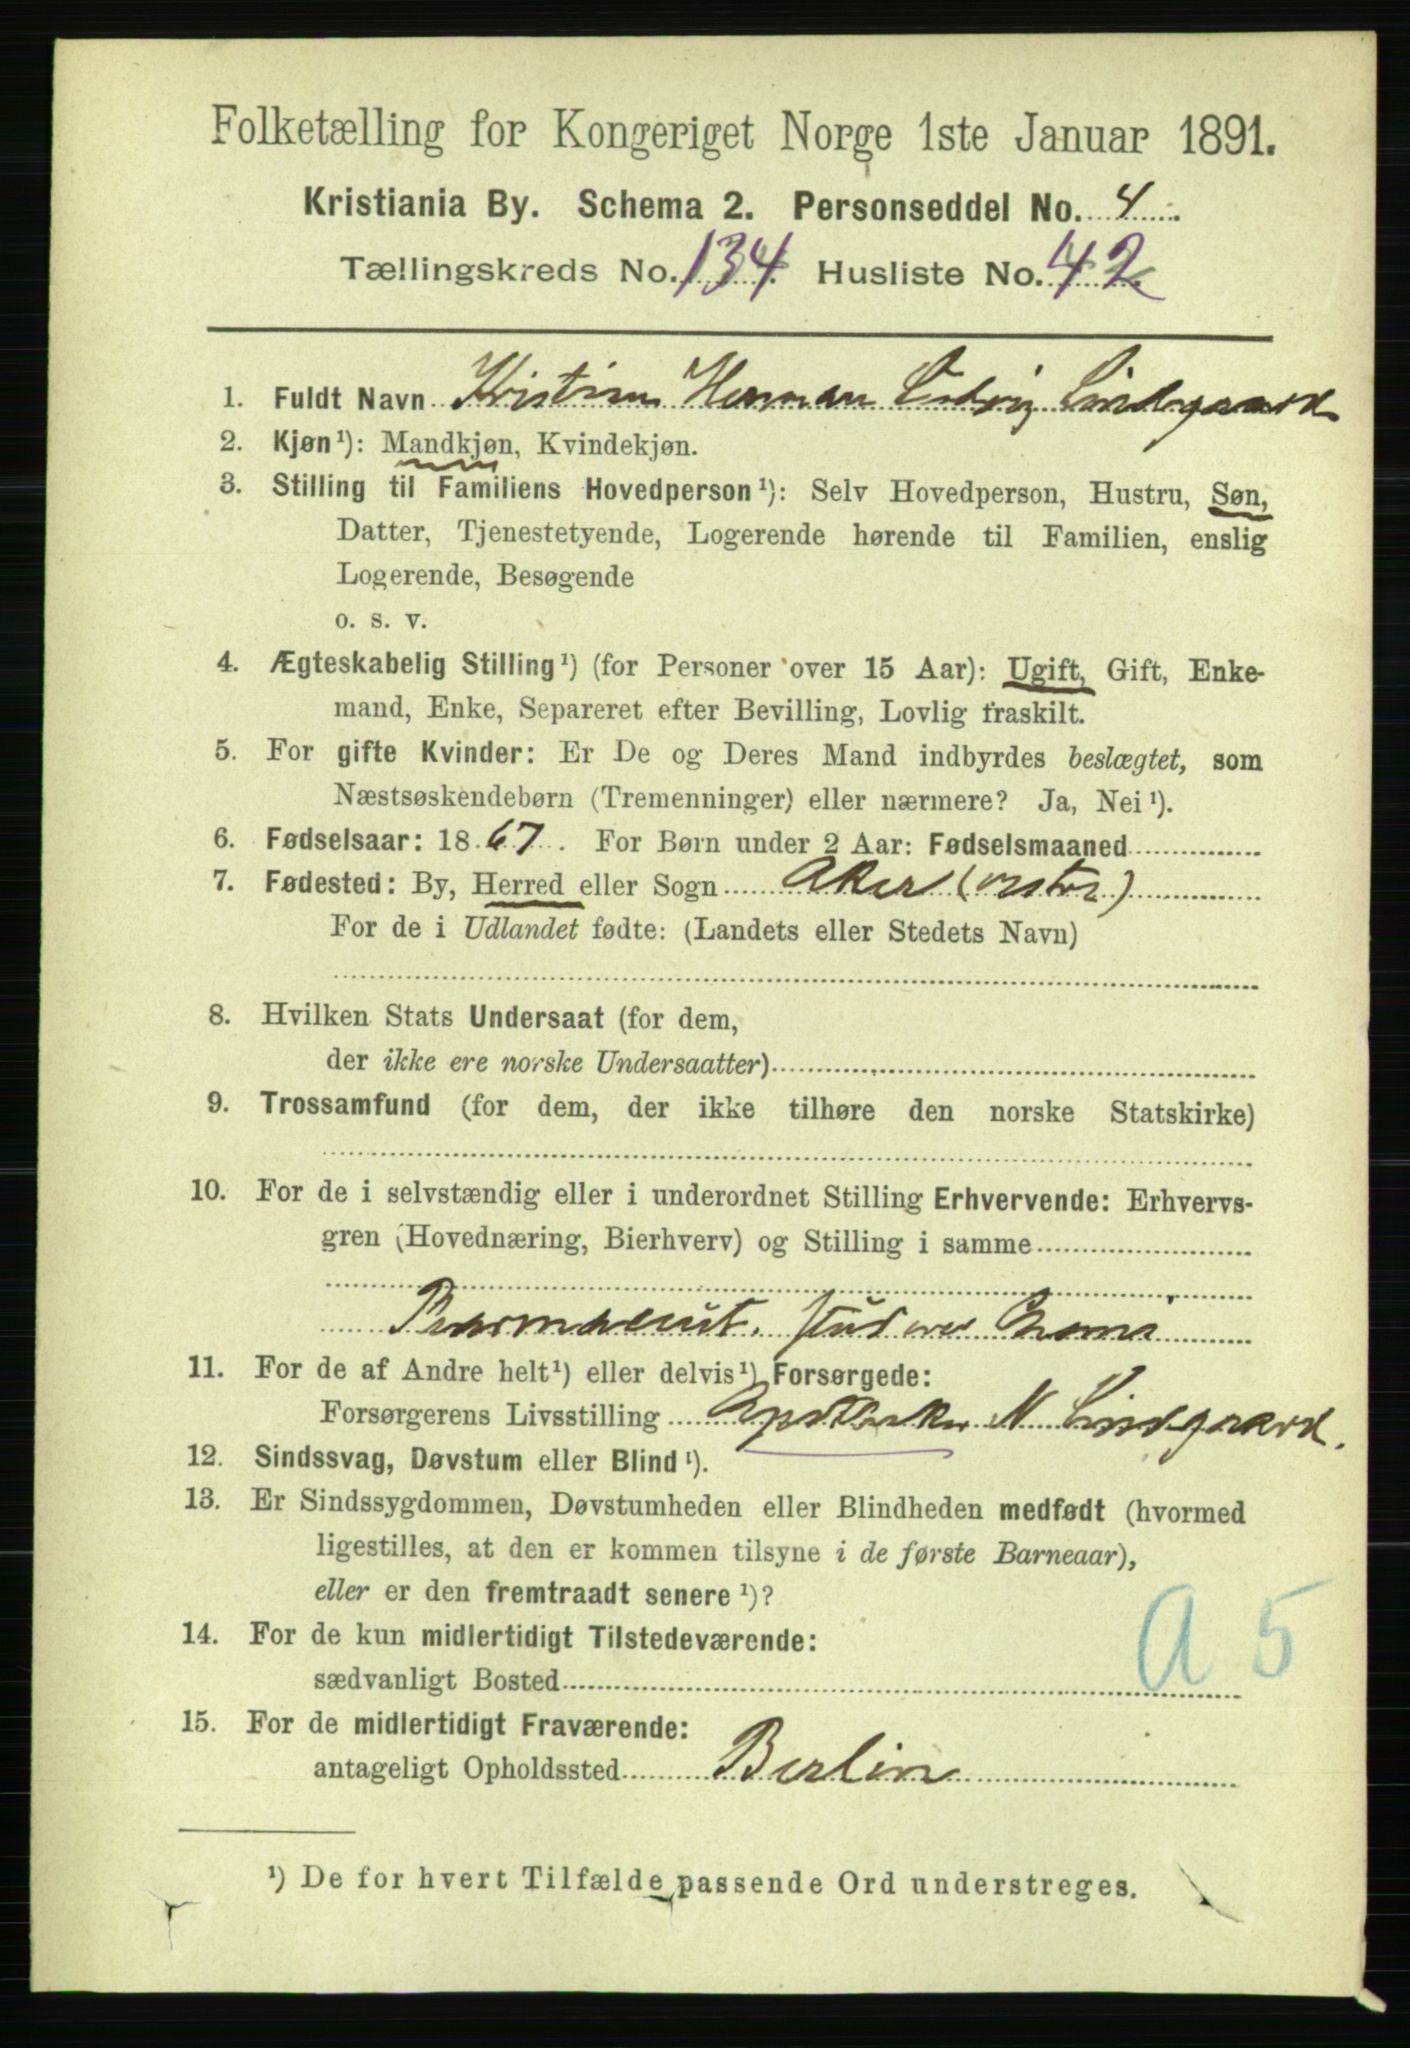 Folketælling for Kongeriget Norge 1ste Januar 1891.
Kristiania By. Schema 2. Personseddel No. 4.
Tællingskreds No. 134. Husliste No. 42.
1. Fuldt Navn Kristian Herman Ludvig Lindgaard
2. Kjøn¹): Mandkjøn, Kvindekjøn.
3. Stilling til Familiens Hovedperson¹): Selv Hovedperson, Hustru, Søn,
Datter, Tjenestetyende, Logerende hørende til Familien, enslig
Logerende, Besøgende
o. s. v.
4. Ægteskabelig Stilling¹) (for Personer over 15 Aar): Ugift, Gift, Enke-
mand, Enke, Separeret efter Bevilling, Lovlig fraskilt.
5. For gifte Kvinder: Er De og Deres Mand indbyrdes beslægtet, som
Næstsøskendebørn (Tremenninger) eller nærmere? Ja, Nei¹).
6. Fødselsaar: 1867. For Børn under 2 Aar: Fødselsmaaned
7. Fødested: By, Herred eller Sogn Aker
For de i Udlandet fødte: (Landets eller Stedets Navn)
8. Hvilken Stats Undersaat (for dem,
der ikke ere norske Undersaatter)
9. Trossamfund (for dem, der ikke tilhøre den norske Statskirke)
10. For de i selvstændig eller i underordnet Stilling Erhvervende: Erhvervs-
gren (Hovednæring, Bierhverv) og Stilling i samme
Pharmaceut, studerer
11. For de af Andre helt¹) eller delvis¹) Forsørgede:
Forsørgerens Livsstilling Apotheker N Lindgaard.
12. Sindssvag, Døvstum eller Blind¹).
13. Er Sindssygdommen, Døvstumheden eller Blindheden medfødt (hvormed
ligestilles, at den er kommen tilsyne i de første Barneaar),
eller er den fremtraadt senere¹)?
14. For de kun midlertidigt Tilstedeværende:
sædvanligt Bosted
A 5
15. For de midlertidigt Fraværende:
antageligt Opholdssted Berlin
¹) De for hvert Tilfælde passende Ord understreges.